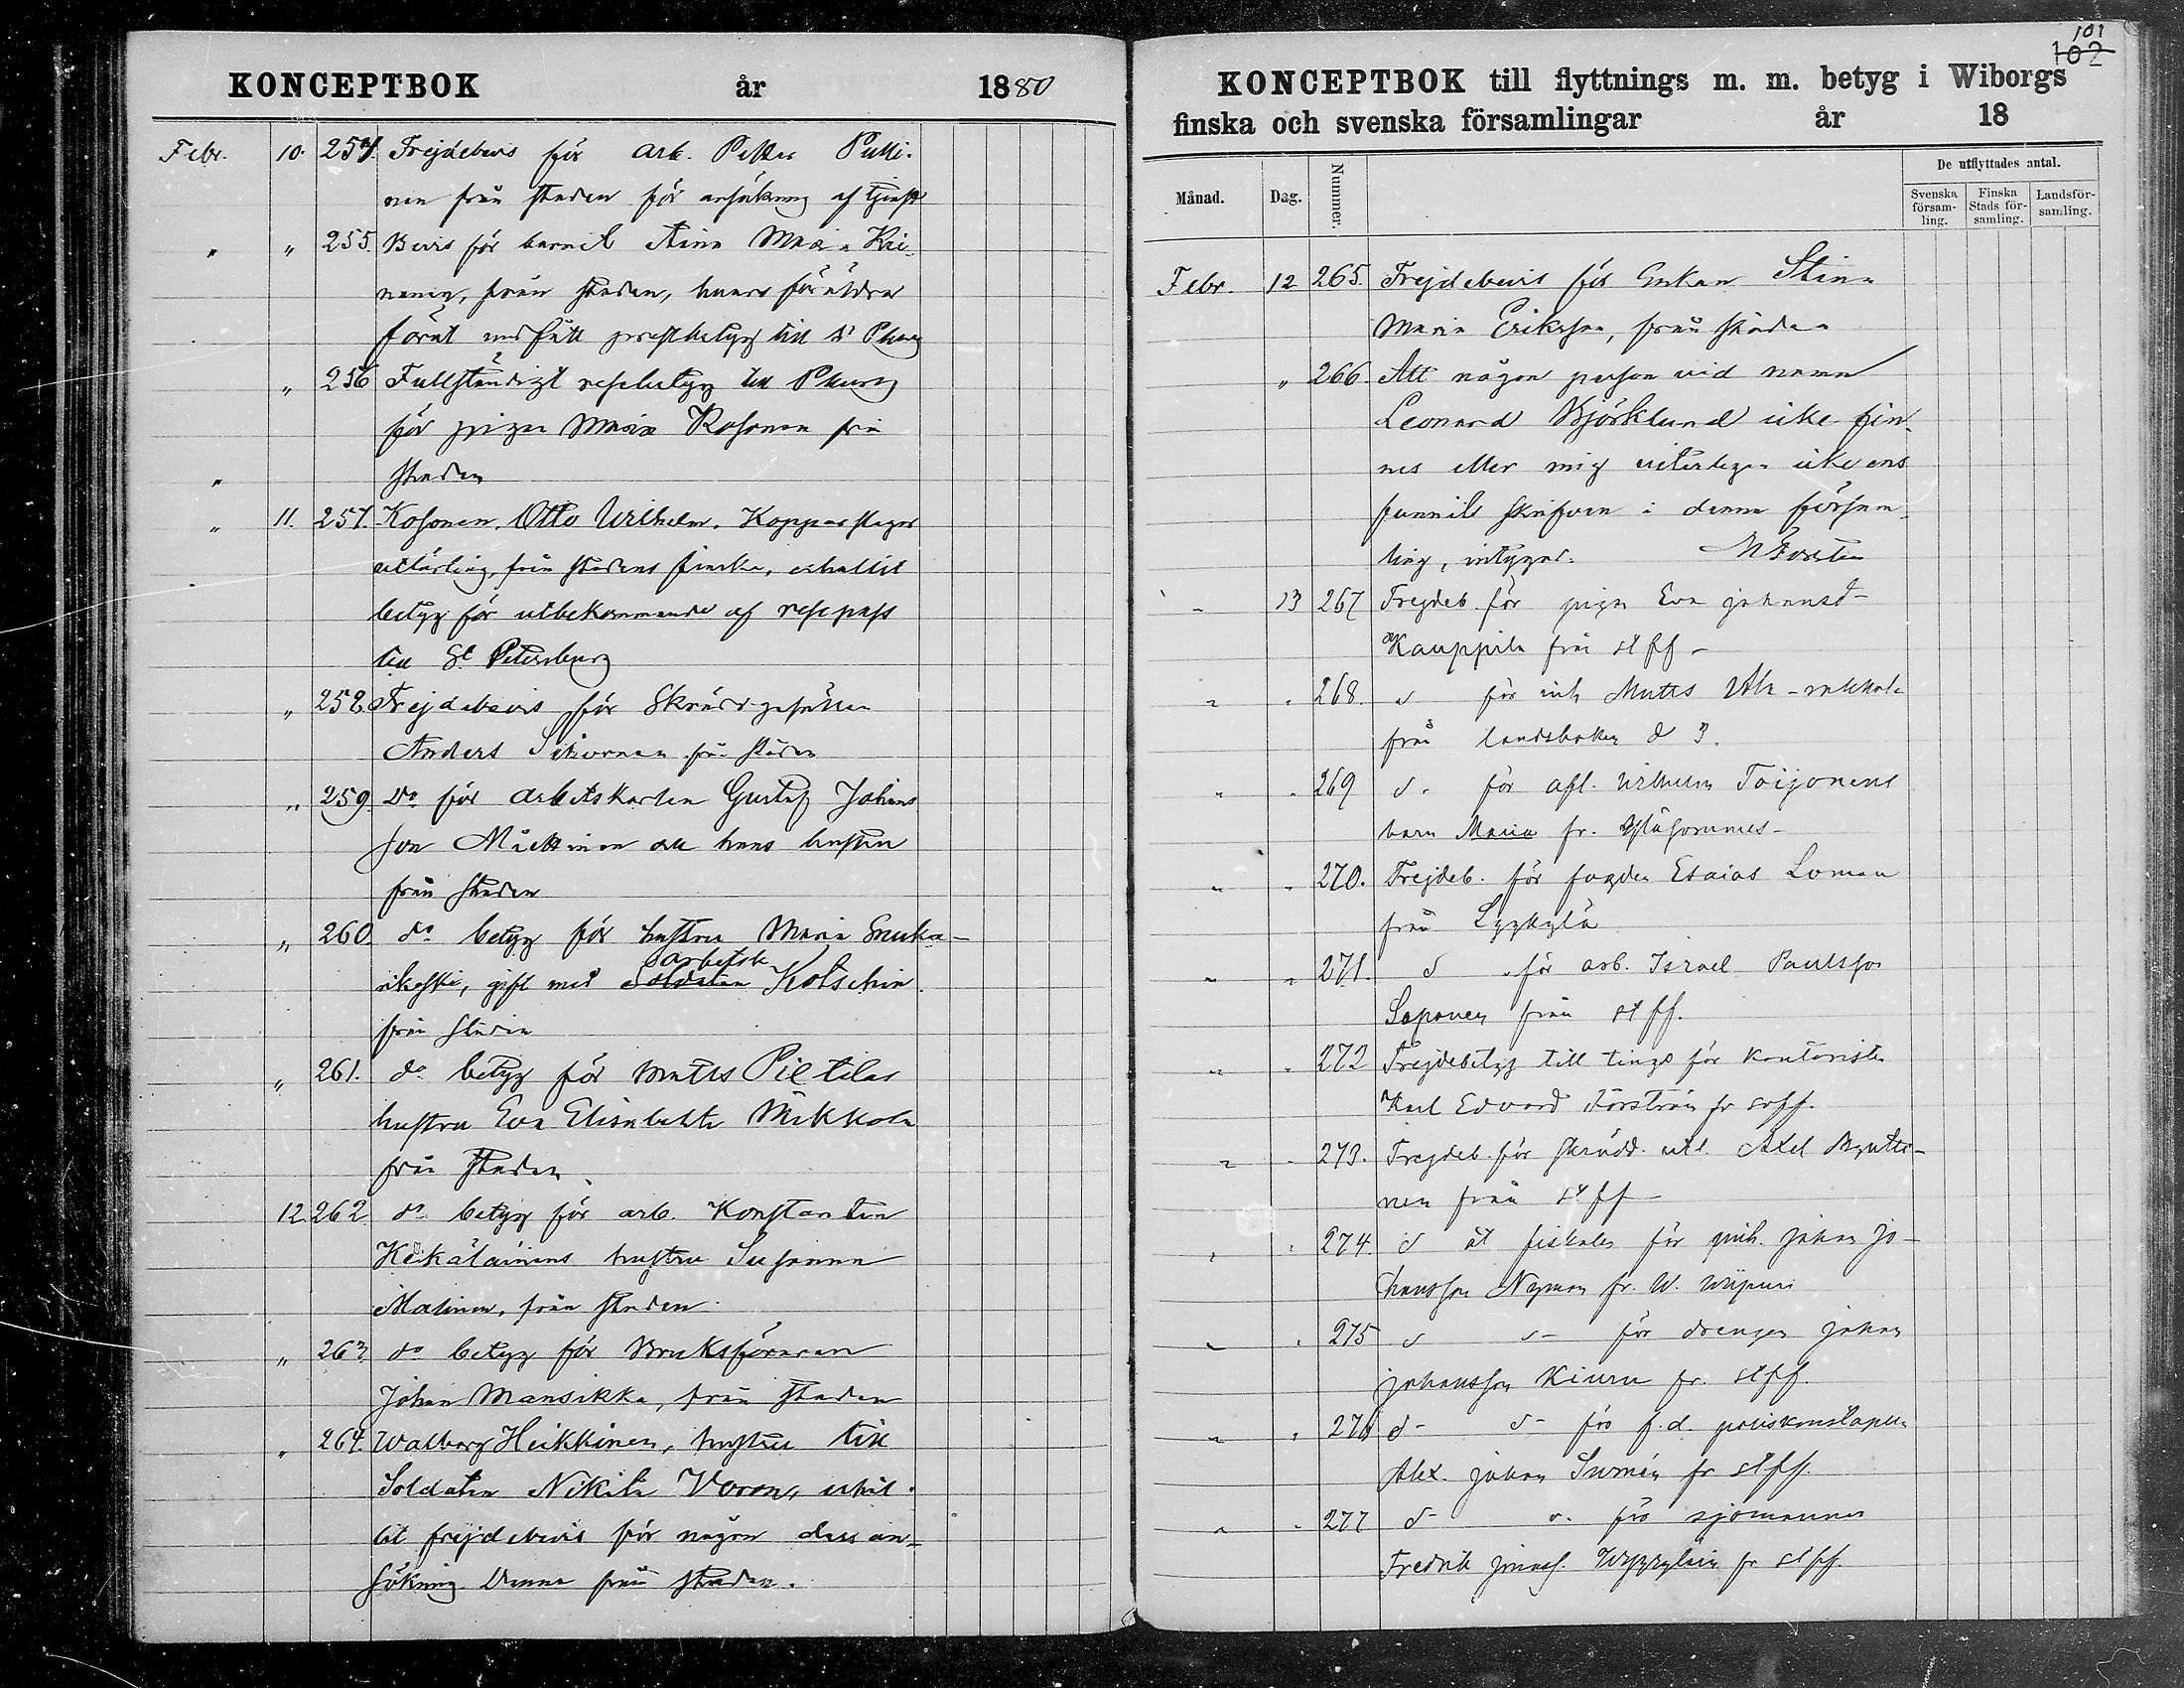 KONCEPTBOK år 1880
Febr. 10. 254. Frejdebevis för arb. Petter Putti-
nen från staden för ansökning af tjenst
" " 255. Bevis för barnet Aina Maria
från staden, hvars föräldrar
förut
" 256 Fullständigt resebetyg till Pburg
för pigan Maria Kosonen från
staden
" 11. 257. Kosonen, Otto Wilhelm. Kopparslagar
utlärling, från stadens finska, erhållit
betyg för utbekommande af respass
till St Petersburg
" 258. Frejdebevis för Skräddargesällen
Anders från staden
" 259. Do för arbetskarlen Gustaf Johans
son Miettinen och hans hustru
från staden
" 260. do betyg för hustru Maria
arbetsk
gift med Soldaten Kotschin
från staden
" 261. do betyg för Matts Pietiläs
hustru Eva Elisabeth Mikkola
från staden
12. 262 do betyg för arb. Konstantin
Kekäläinens hustru Susanna
Malinen, från staden.
" 263. do betyg för Bruksföraren
Johan Mansikka, från staden
" 264. Walborg Heikkinen, hustru till
Soldaten Nikita Voron, erhål-
lit frejdebevis för någon dess an-
sökning. Denna från staden.
101
102
KONCEPTBOK till flyttnings m. m. betyg i Wiborgs
finska och svenska församlingar år 18
Månad. Dag. Nummer. De utflyttades antal.
Svenska försam-ling. Finska Stads för-samling. Landsför-samling.
Febr. 12 265. Frejdebevis för Enkan Stina
Maria Eriksson, från staden
" 266. Att någon person vid namn
Leonard Björklund icke fin-
nes eller mig veterligen icke ens
funnits skrifven i denna försam-
ling, intygar.
" 13 267 Frejdeb. för pigan Eva Johansd-
Kauppila från st ff -
" " 268. d för inh. Matts
från landsboken d 3.
" " 269 d. för afl. Wilhelm Toijonens
barn Maria fr. Yläsommes-
" " 270. Frejdeb. för fogden Esaias Loman
från Lyykylä
" " 271. d för arb. Israel Paulsson
Saponen från st ff.
" " 272 Frejdebetyg till tings för kontoristen
Karl Edvard Forström fr sv ff.
" " 273. Frejdeb. för skrädd. utl. Axel
nen från st ff -
" " 274. d åt fiskalen för inh. Johan Jo-
hansson Nyman fr. W. Wiipuri
" " 275 d d- för drengen Johan
Johansson Kiuru fr. st ff.
" " 276 d- d- för f. d. poliskonstapeln
Alex. Johan Surmén fr st ff.
" " 277 d- d. för sjömannen
Fredrik fr st ff.